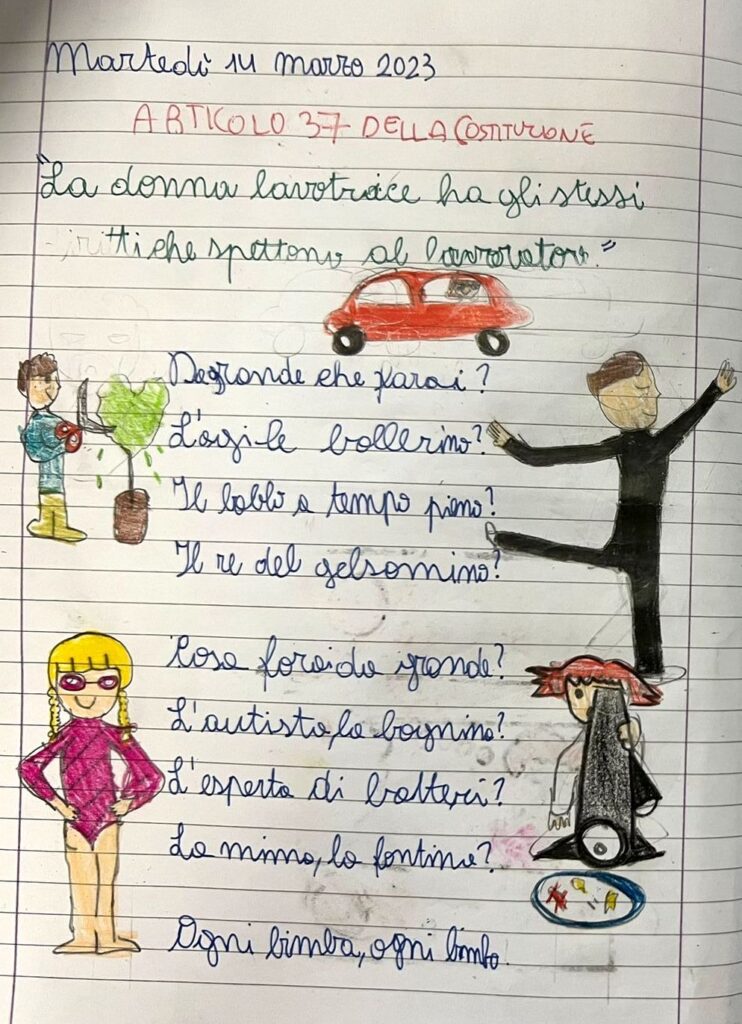 Martedì 14 marzo 2023
ARTICOLO 37 DELLA COSTITUZIONE
"La donna lavotraice ha gli stessi
iritti che spettono al lavoratori."
Da grande che farai?
L'agile ballerino?
Il babbo a tempo pieno?
Il re del gelsomino?
Cosa farai da grande?
L'autista, la bagnina?
L'esperta di batteri?
La mimo, la fantina?
Ogni bimba, ogni bimbo.